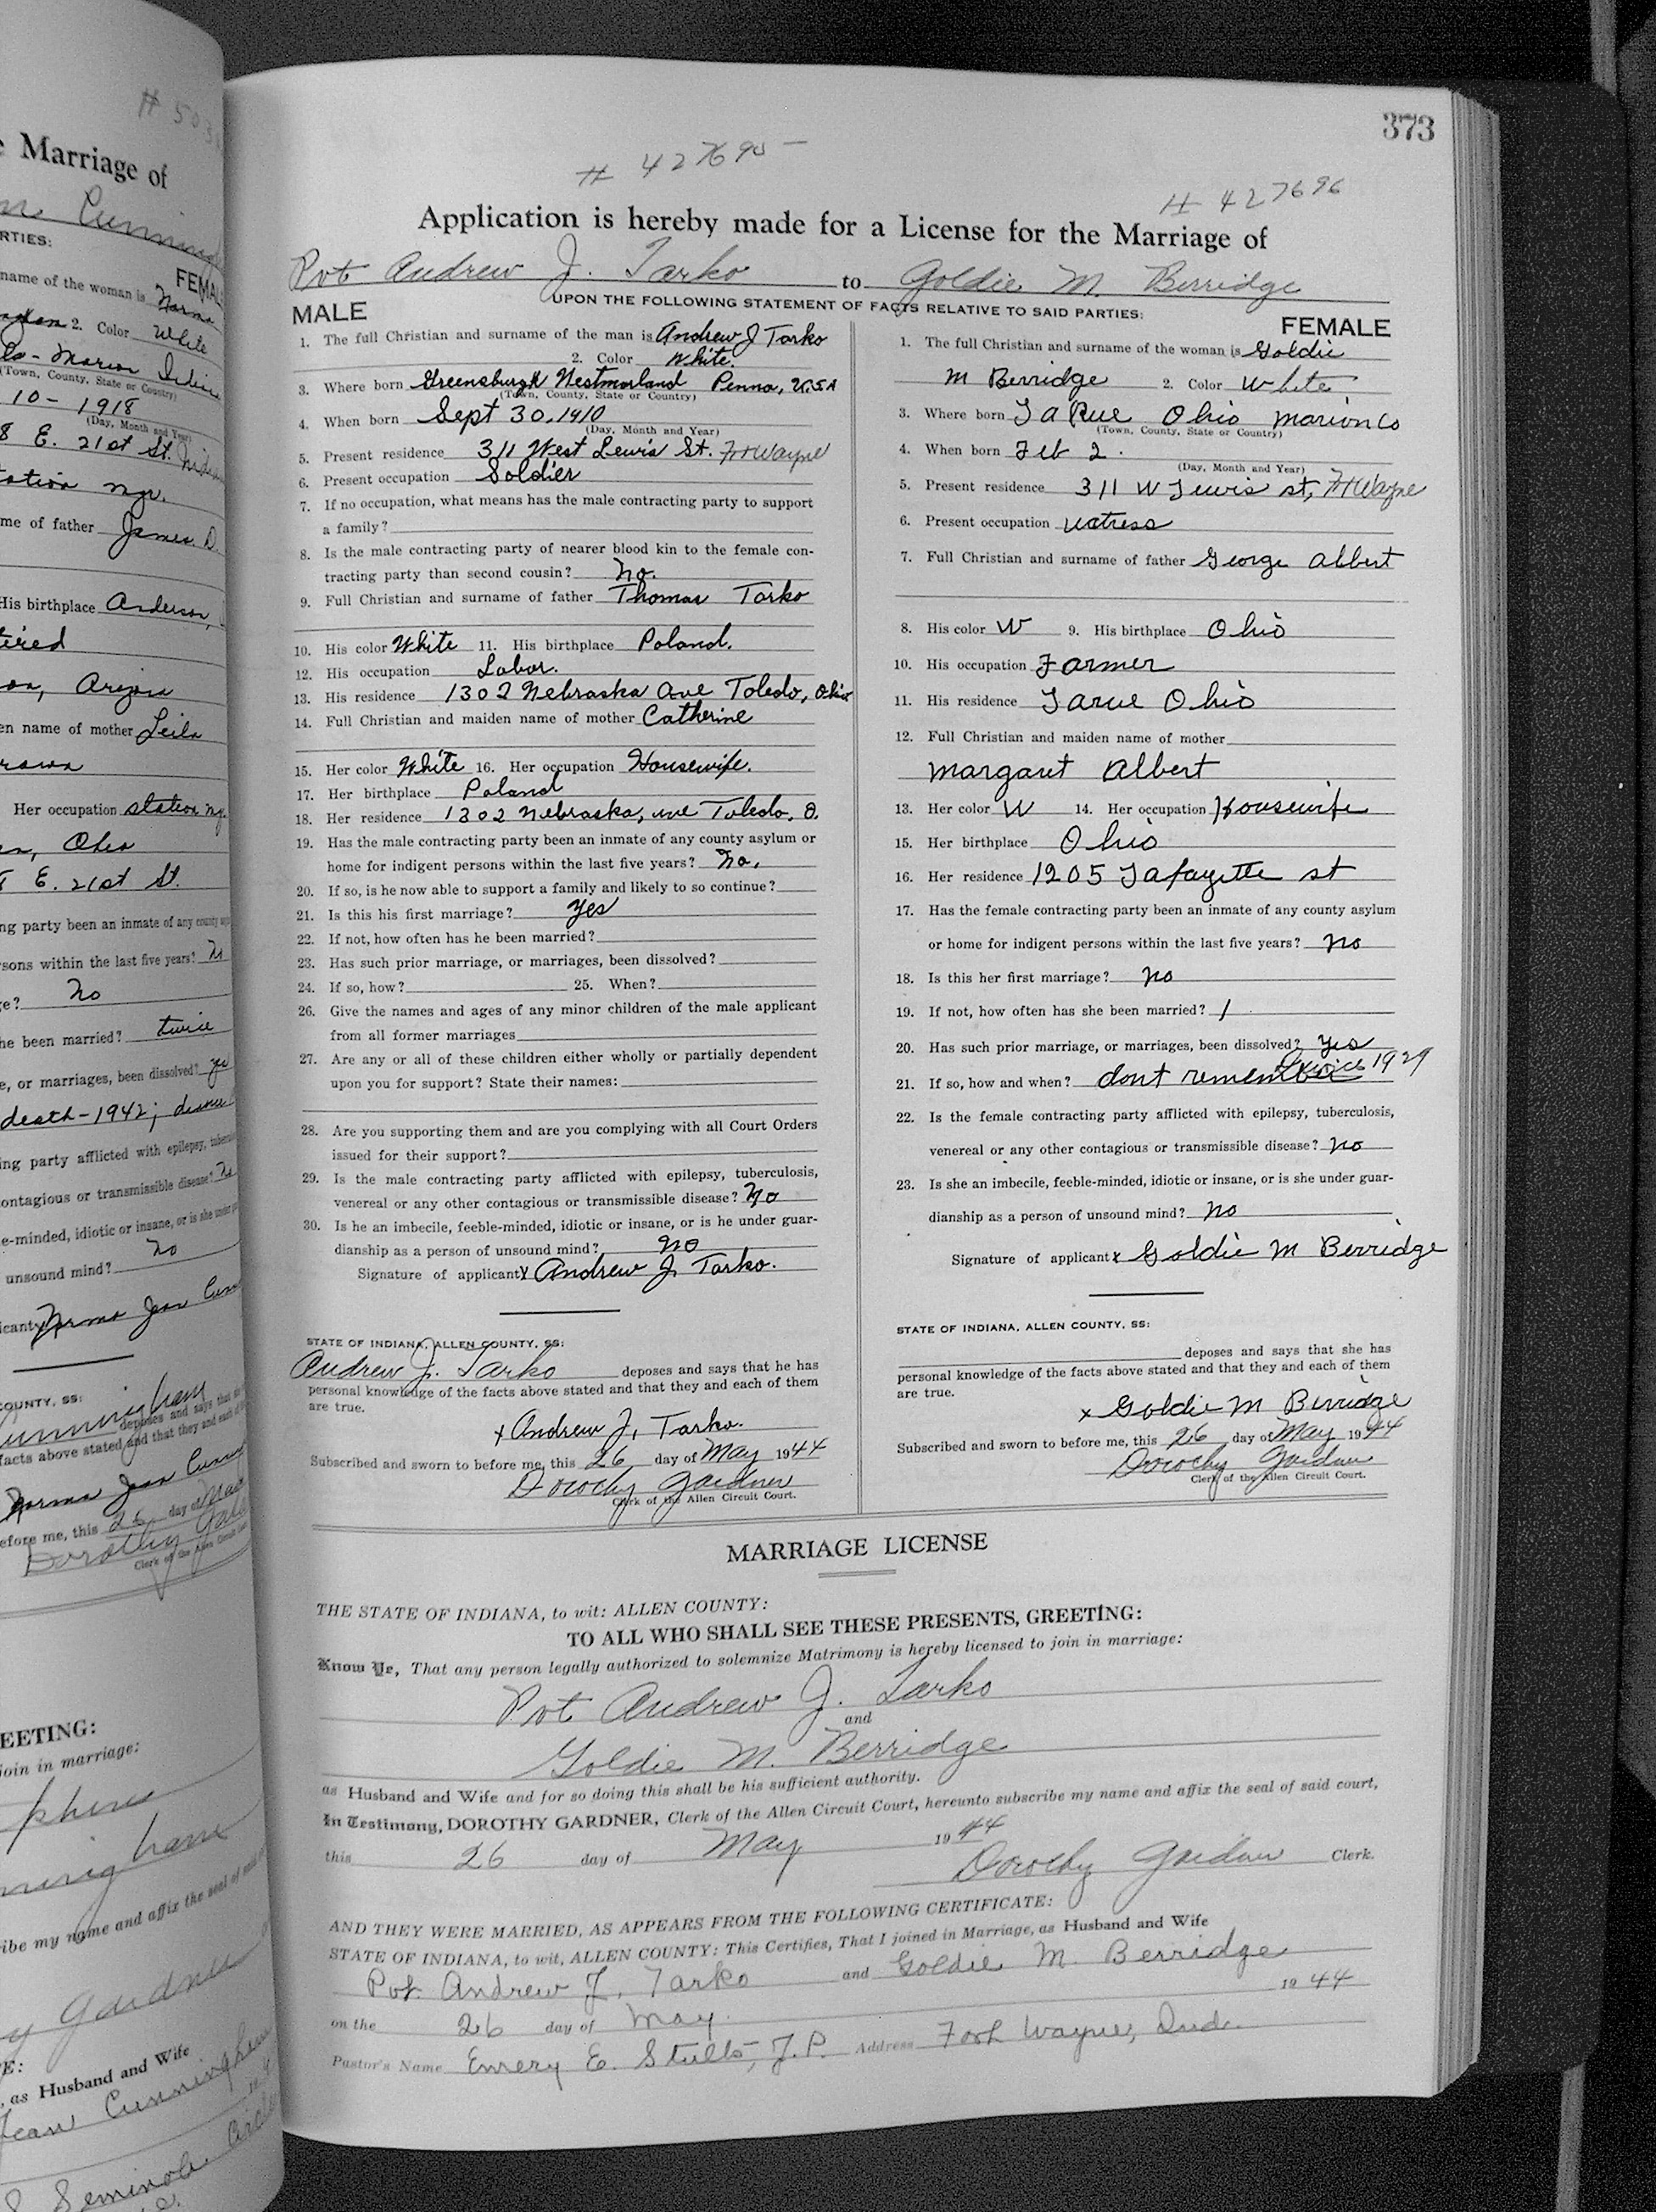 # 503
e Marriage of
Cunning
RTIES:
FEMAL
name of the woman is Norma
2. Color White
Marion
(Town, County, State or Country)
10 - 1918
(Day, Month and Year)
8 E. 21st St.
mgr.
me of father James D.
His birthplace Anderson,
tired
Arizona
en name of mother Leila
Her occupation station mgr.
Ohio
E. 21st St.
ng party been an inmate of any county
sons within the last five years? No
ge? No
he been married? twice
e, or marriages, been dissolved? yes
death - 1942;
ing party afflicted with epilepsy,
ontagious or transmissible disease? No
e-minded, idiotic or insane, or is she under
unsound mind? No
icant Norma Jean Cunn
COUNTY, SS:
unningham deposes and says that
facts above stated and that they and each of
Norma Jean Cunn
efore me, this 26 day of May
Dorothy Gard
Clerk of the Allen Circuit
EETING:
join in marriage:
ibe my name and affix the seal of said
y Gardner
E:
, as Husband and Wife
Jean Cunningham
Seminole Circle
373
# 427695 -
# 427696
Application is hereby made for a License for the Marriage of
Pvt Andrew J. Tarko to Goldie M. Berridge
UPON THE FOLLOWING STATEMENT OF FACTS RELATIVE TO SAID PARTIES:
MALE
1. The full Christian and surname of the man is Andrew J Tarko
2. Color White.
3. Where born Greensburgh Westmorland Penna, U.S.A
(Town, County, State or Country)
4. When born Sept 30, 1910
(Day, Month and Year)
5. Present residence 311 West Lewis St. Ft Wayne
6. Present occupation Soldier
7. If no occupation, what means has the male contracting party to support
a family?
8. Is the male contracting party of nearer blood kin to the female con-
tracting party than second cousin? No.
9. Full Christian and surname of father Thomas Tarko
10. His color White 11. His birthplace Poland.
12. His occupation Labor.
13. His residence 1302 Nebraska Ave Toledo, Ohio
14. Full Christian and maiden name of mother Catherine
15. Her color White 16. Her occupation Housewife.
17. Her birthplace Poland
18. Her residence 1302 Nebraska, ave Toledo, O.
19. Has the male contracting party been an inmate of any county asylum or
home for indigent persons within the last five years? No,
20. If so, is he now able to support a family and likely to so continue?
21. Is this his first marriage? yes
22. If not, how often has he been married?
23. Has such prior marriage, or marriages, been dissolved?
24. If so, how? 25. When?
26. Give the names and ages of any minor children of the male applicant
from all former marriages
27. Are any or all of these children either wholly or partially dependent
upon you for support? State their names:
28. Are you supporting them and are you complying with all Court Orders
issued for their support?
29. Is the male contracting party afflicted with epilepsy, tuberculosis,
venereal or any other contagious or transmissible disease? No
30. Is he an imbecile, feeble-minded, idiotic or insane, or is he under guar-
dianship as a person of unsound mind? No
Signature of applicant X Andrew J. Tarko.
STATE OF INDIANA, ALLEN COUNTY, SS:
Andrew J. Tarko deposes and says that he has
personal knowledge of the facts above stated and that they and each of them
are true.
x Andrew J, Tarko.
Subscribed and sworn to before me, this 26 day of May 1944
Dorothy Gardner
Clerk of the Allen Circuit Court.
FEMALE
1. The full Christian and surname of the woman is Goldie
M Berridge 2. Color White
3. Where born La Rue Ohio Marion Co
(Town, County, State or Country)
4. When born Feb 2.
(Day, Month and Year)
5. Present residence 311 W Lewis st, Ft Wayne
6. Present occupation watress
7. Full Christian and surname of father George Albert
8. His color W 9. His birthplace Ohio
10. His occupation Farmer
11. His residence Larue Ohio
12. Full Christian and maiden name of mother
Margaret Albert
13. Her color W 14. Her occupation Housewife
15. Her birthplace Ohio
16. Her residence 1205 Lafayette st
17. Has the female contracting party been an inmate of any county asylum
or home for indigent persons within the last five years? no
18. Is this her first marriage? no
19. If not, how often has she been married? 1
20. Has such prior marriage, or marriages, been dissolved? yes
21. If so, how and when? dont remember Divorce 1929
22. Is the female contracting party afflicted with epilepsy, tuberculosis,
venereal or any other contagious or transmissible disease? no
23. Is she an imbecile, feeble-minded, idiotic or insane, or is she under guar-
dianship as a person of unsound mind? no
Signature of applicant x Goldie M Berridge
STATE OF INDIANA, ALLEN COUNTY, SS:
deposes and says that she has
personal knowledge of the facts above stated and that they and each of them
are true.
x Goldie M Berridge
Subscribed and sworn to before me, this 26 day of May 1944
Dorothy Gardner
Clerk of the Allen Circuit Court.
MARRIAGE LICENSE
THE STATE OF INDIANA, to wit: ALLEN COUNTY:
TO ALL WHO SHALL SEE THESE PRESENTS, GREETING:
Know Ye, That any person legally authorized to solemnize Matrimony is hereby licensed to join in marriage:
Pvt Andrew J. Tarko
and
Goldie M. Berridge
as Husband and Wife and for so doing this shall be his sufficient authority.
In Testimony, DOROTHY GARDNER, Clerk of the Allen Circuit Court, hereunto subscribe my name and affix the seal of said court,
this 26 day of May 1944
Dorothy Gardner Clerk.
AND THEY WERE MARRIED, AS APPEARS FROM THE FOLLOWING CERTIFICATE:
STATE OF INDIANA, to wit, ALLEN COUNTY: This Certifies, That I joined in Marriage, as Husband and Wife
Pvt. Andrew J. Tarko and Goldie M. Berridge
on the 26 day of May. 1944
Pastor's Name Emery E. Stults, J.P. Address Fort Wayne, Ind.